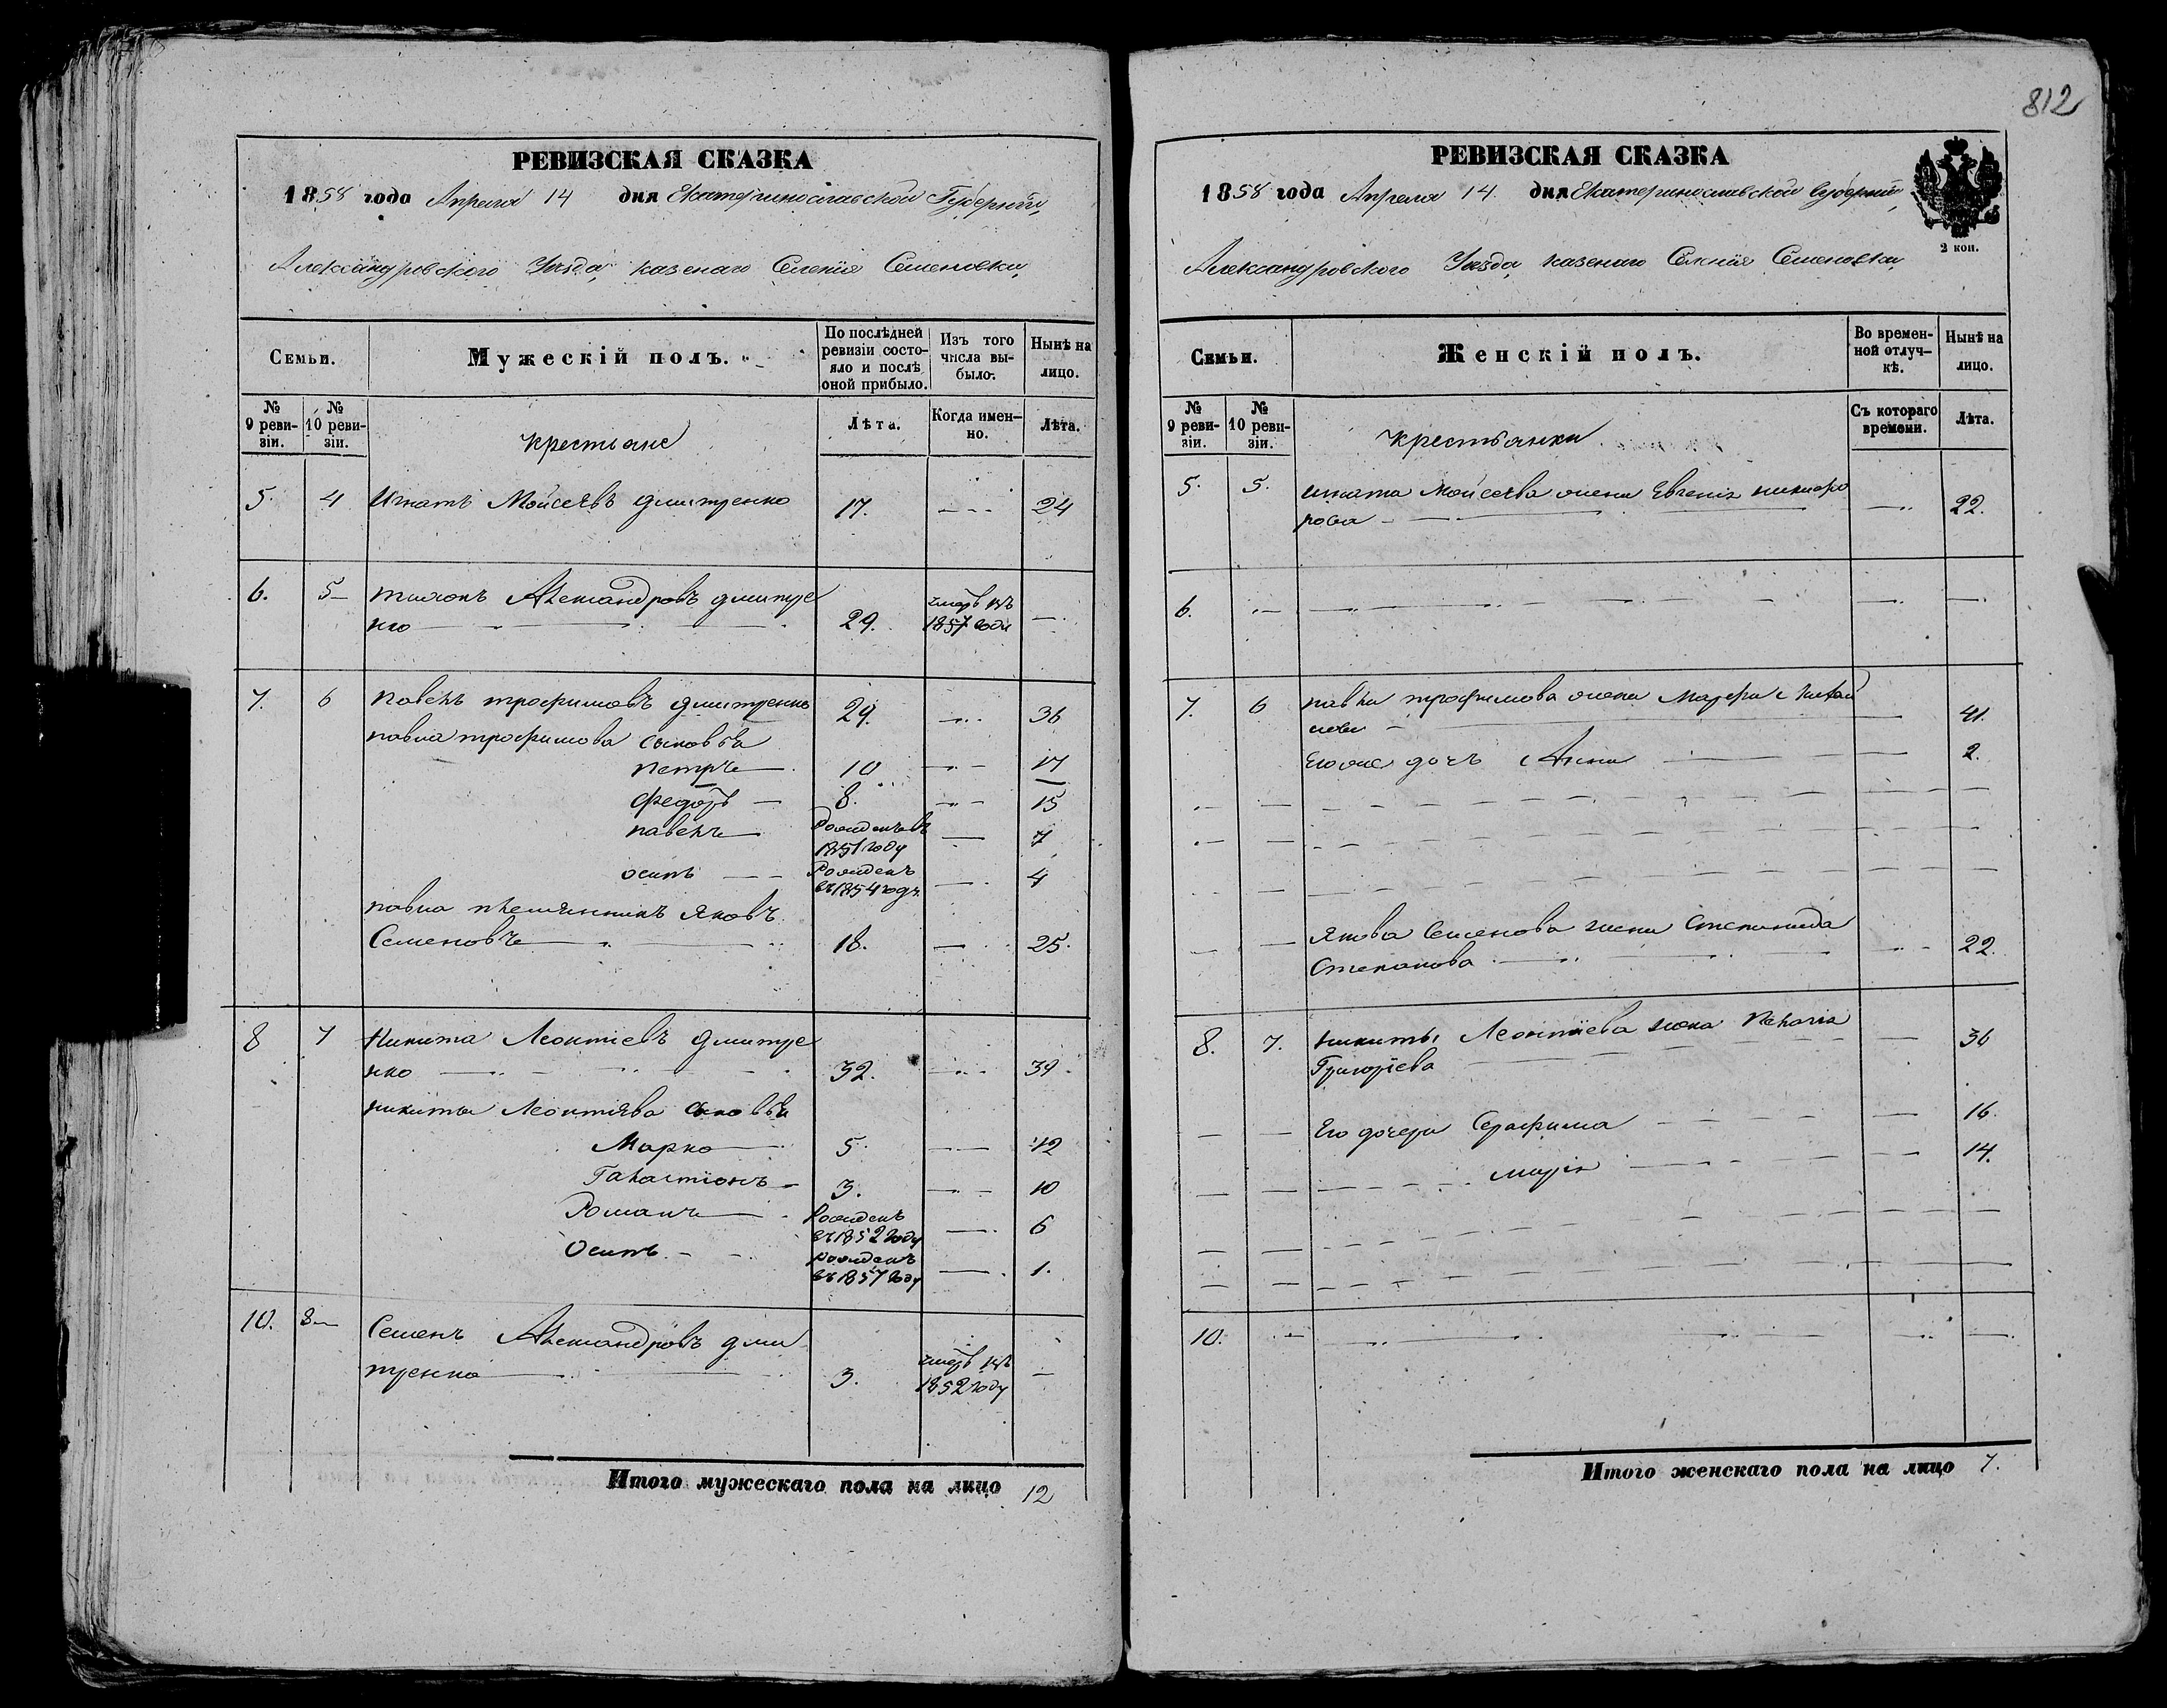 812
РЕВИЗСКАЯ СКАЗКА
1858 года Апреля 14 дня Екатеринославской Губернии,
Александровского Уезда казенаго Селенія Семеновки
Семьи.
Мужескій полъ.
По послѣдней ревизіи состо-
яло и послѣ
оной прибыло.
Изъ того
числа вы-
было.
Нынѣ на
лицо.
№
9 реви-
зіи.
№
10 реви-
зіи.
крестьяне
Лѣта.
Когда имен-
но.
Лѣта.
5. 4 Игнатъ Мойсеевъ Дмитренко 17. 24
6. 5 Александровъ Дмитре
нко 29. 1857 года
7. 6 Павелъ трофимовъ Дмитренко 29. 36
павла трофимова сыновья
петръ 10 17
федоръ 8. 15
павелъ Рожденъ въ
1851 году 7
осипъ Рожденъ
въ 1854 году 4
павла племянникъ Яковъ
Семеновъ 18. 25.
8 7 Никита Леонтіевъ Дмитре
нко 32. 39
никиты Леонтява сыновья
Марко 5. 12
3. 10
Романъ Рожденъ
въ 1852 году 6
Осипъ рожденъ
въ 1857 году 1.
10. 8 Семенъ Александровъ Дми
тренко 3. 1852 году
Итого мужескаго пола на лицо 12
РЕВИЗСКАЯ СКАЗКА
1858 года Апреля 14 дня Екатеринославской Губерніи,
Александровского Уезда казенаго Селенія Семеновки
2 коп.
Семьи.
Женскій полъ.
Во времен-
ной отлуч-
кѣ.
Нынѣ на
лицо.
№
9 реви-
зіи.
№
10 реви-
зіи.
крестьянки
Съ котораго
времени.
Лѣта.
5. 5. игната Мойсеева жена Евгенія никифо
рова 22.
6.
7. 6 павла трофимова жена Марфа
41.
Его же дочь Анна 2.
Якова Семенова жена Степанида
Степанова 22.
8. 7. никиты Леонтіева жена Пелагия
Григоріева 36
Его дочери Серафима 16.
марія 14.
10.
Итого женскаго пола на лицо 7.